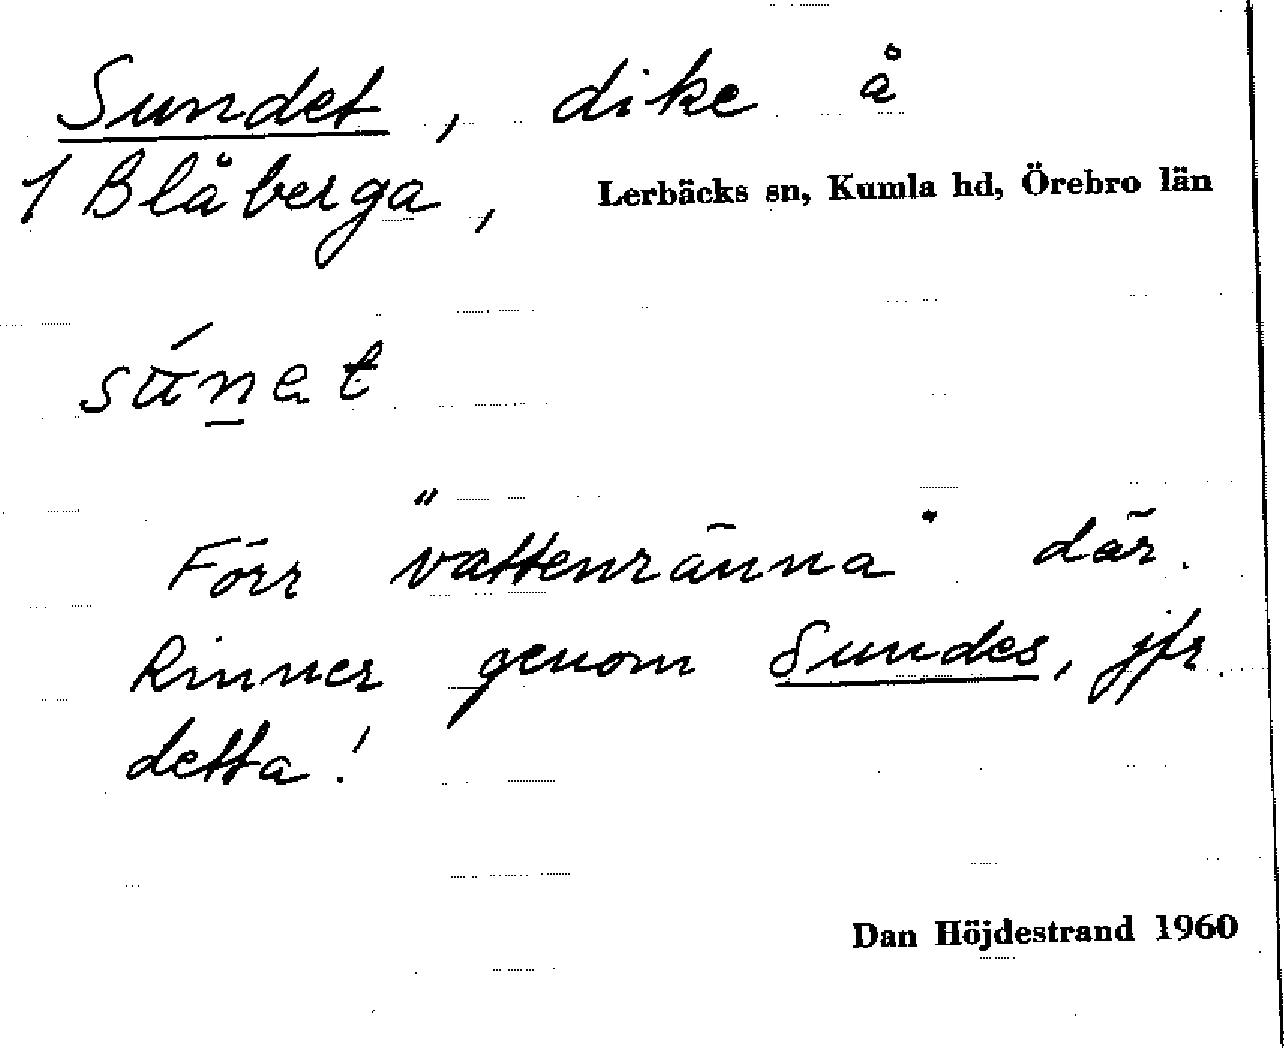 Sundet, dike å
1 Blåberga, Lerbäcks sn, Kumla hd, Örebro län
súnet
Förr "vattenränna" där.
Rinner genom Sundes, jfr
detta!
Dan Höjdestrand 1960